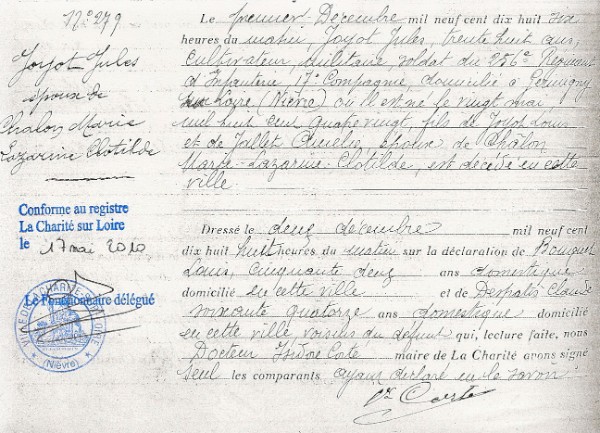 N° 279
Joyot Jules
époux de
Chalon Marie
Lazarine Clotilde
Conforme au registre
La Charité sur Loire
le 17 mai 2010
Le Fonctionnaire délégué
VILLE DE LA CHARITE-SUR-LOIRE
(Nièvre)
Le premier Décembre mil neuf cent dix huit six
heures du matin, Joyot Jules, trente huit ans,
Cultivateur, militaire soldat du 256e Régiment
d'Infanterie 17e Compagnie, domicilié à Germigny
sur Loire (Nièvre) où il est né le vingt mai
mil huit cent quatre vingt, fils de Joyot Louis
et de Jallet Aurélie, époux de Châlon
Marie-Lazarine-Clotilde, est décédé en cette
ville
Dressé le deux décembre mil neuf cent
dix huit huit heures du matin sur la déclaration de Bouquet
Louis, cinquante deux ans domestique
domicilié en cette ville et de Despatis Claude
soixante quatorze ans domestique domicilié
en cette ville voisins du défunt qui, lecture faite, nous
Docteur Isidore Cote maire de La Charité avons signé
seul les comparants ayant déclaré ne le savoir.